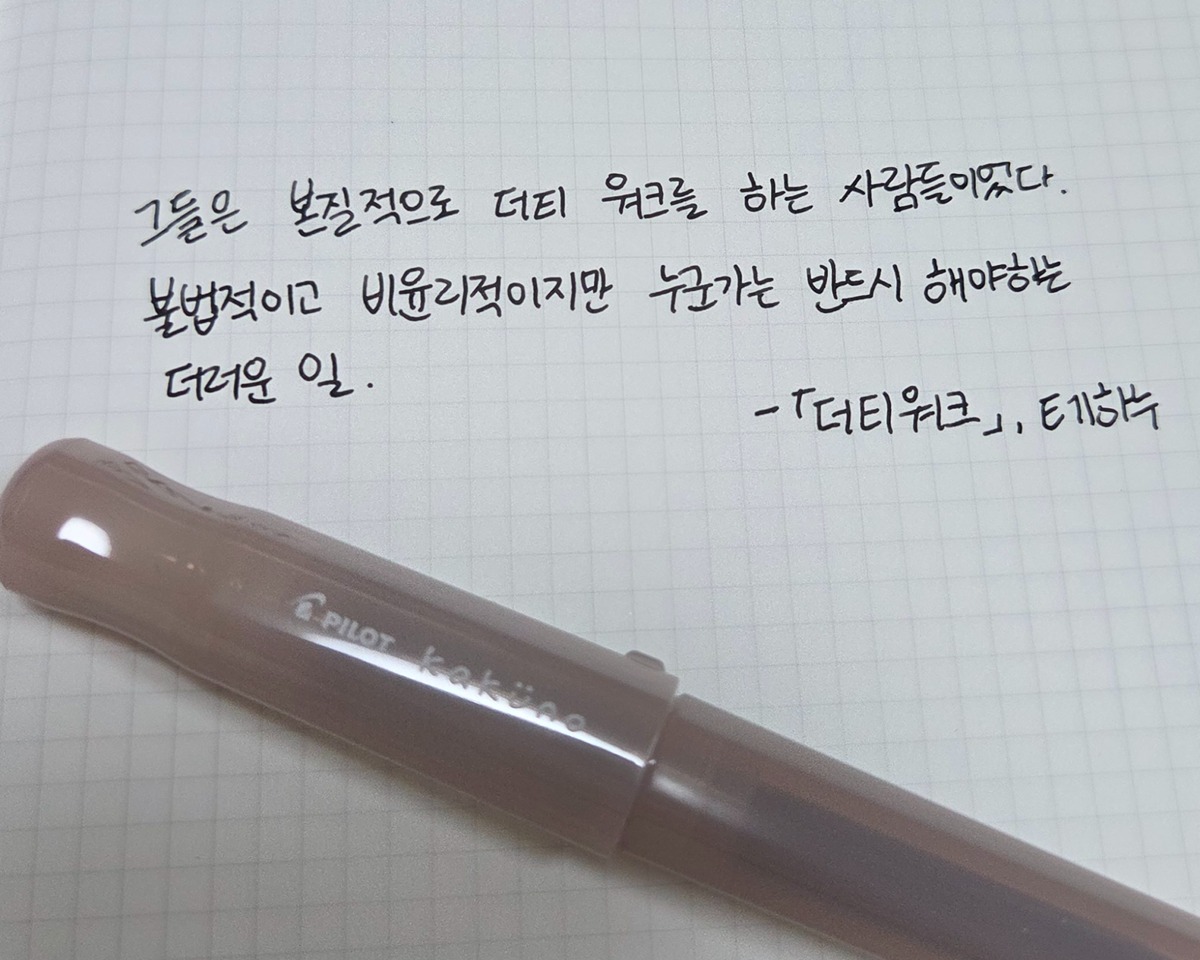 그들은 본질적으로 더티 워크를 하는 사람들이었다.
불법적이고 비윤리적이지만 누군가는 반드시 해야하는
더러운 일.
-「더티워크」, E기하누
PILOT kaküno